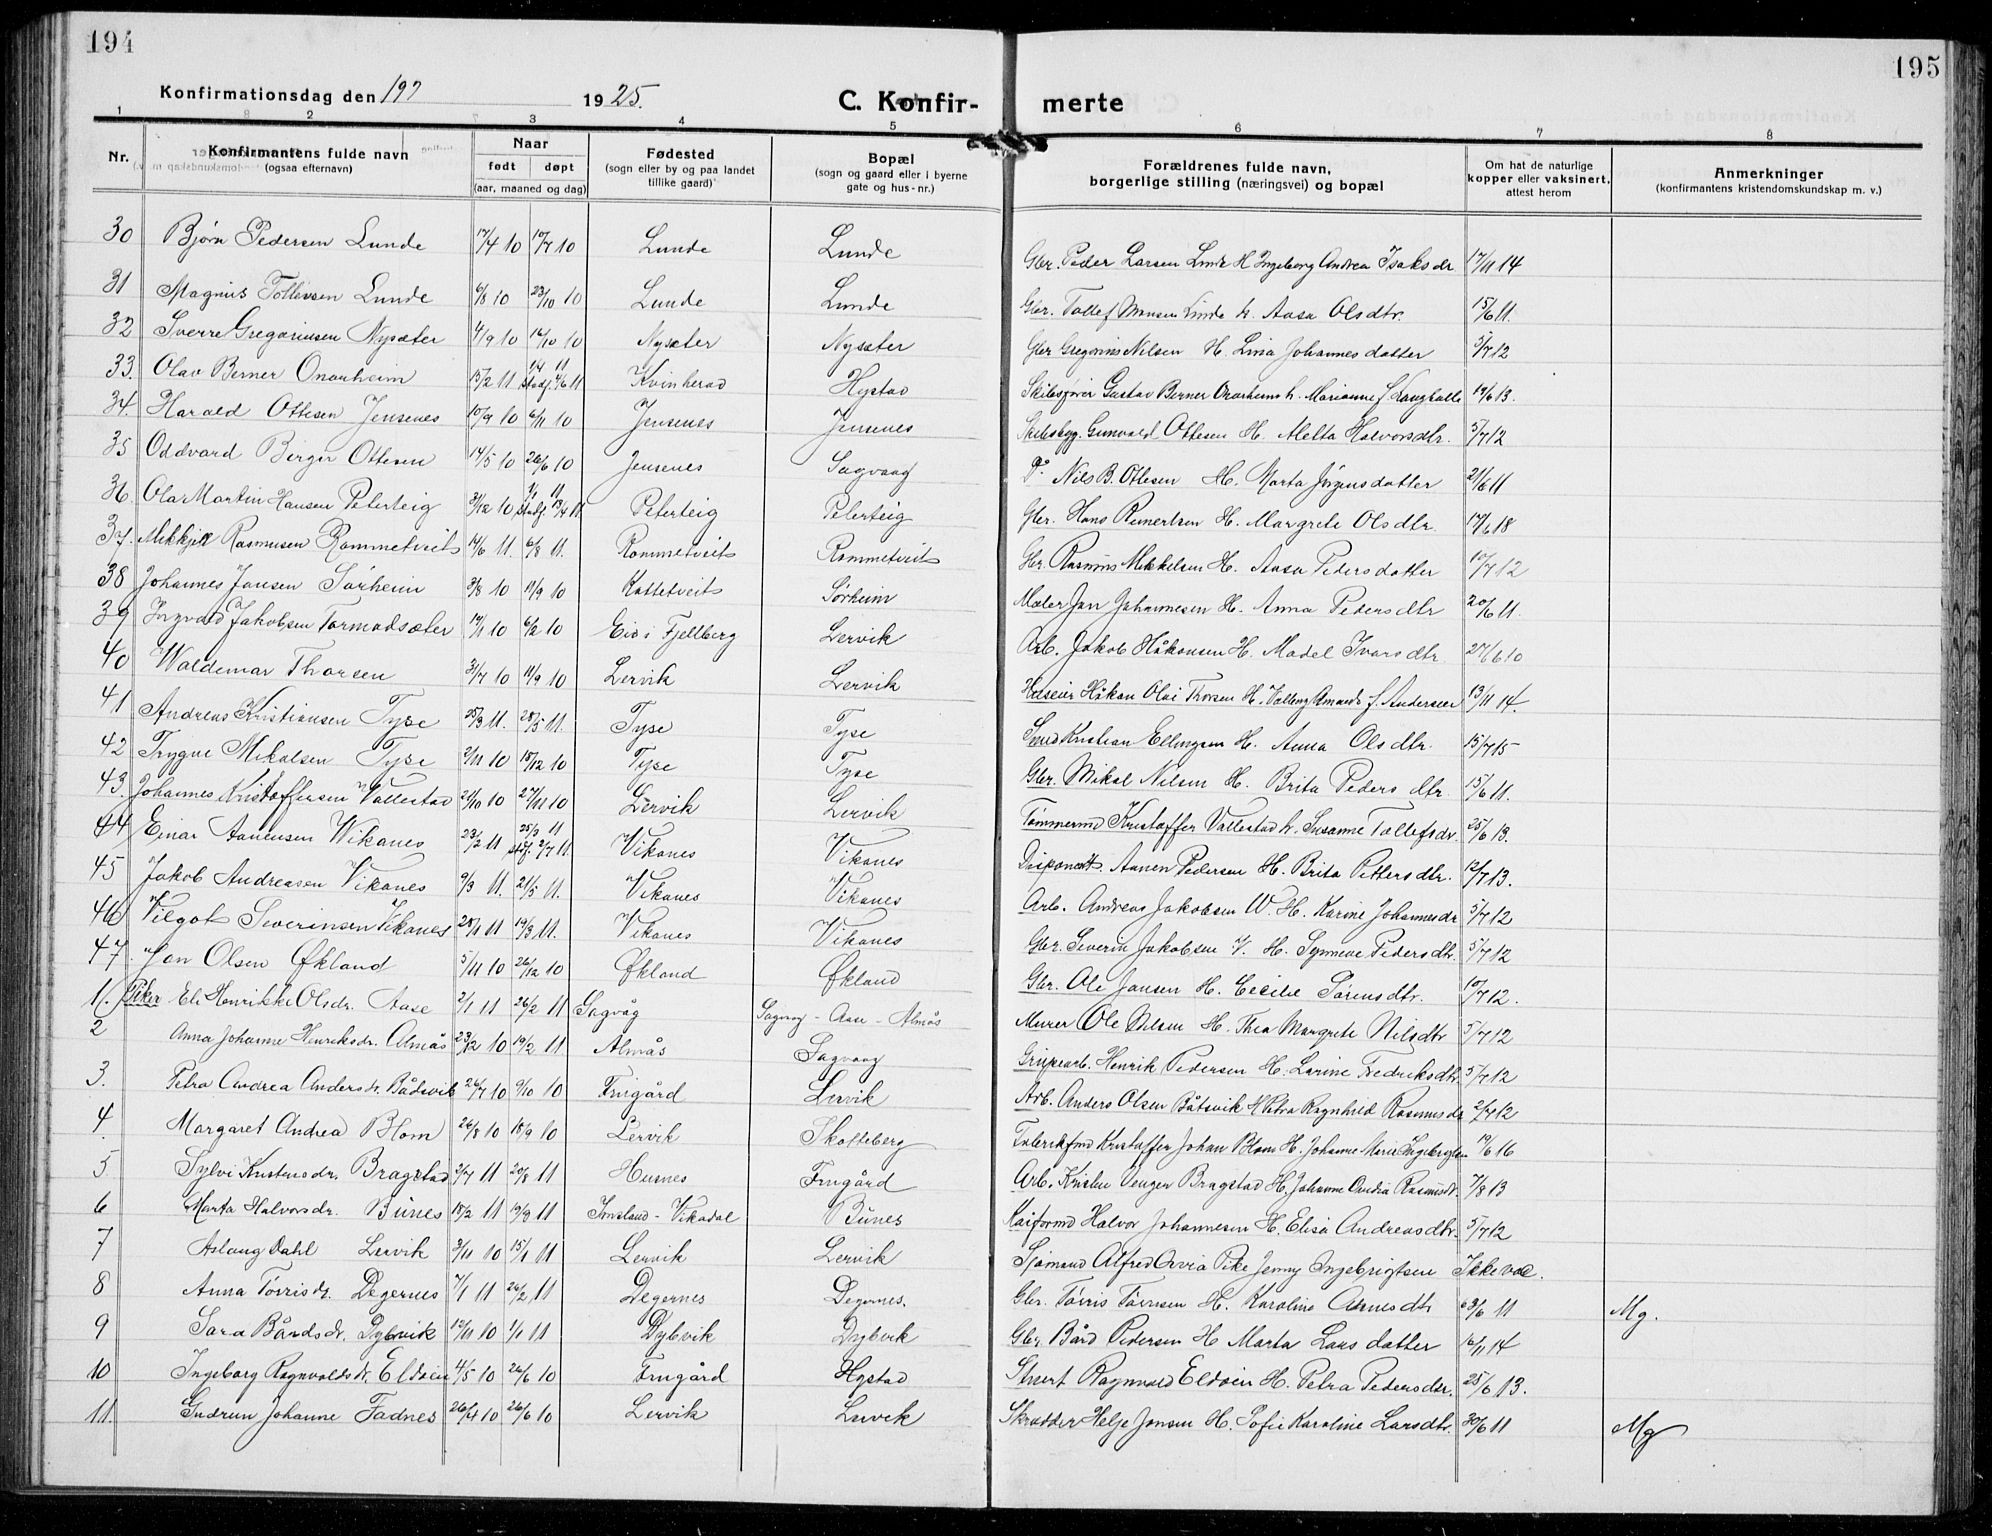 194
195
Konfirmationsdag den 19? 1925.
C. Konfirmerte
1 2 3 4 5 6 7 8
Nr. Konfirmantens fulde navn (ogsaa efternavn) Naar født døpt (aar, maaned og dag) Fødested (sogn eller by og paa landet tillike gaard) Bopæl (sogn og gaard eller i byerne gate og hus-nr.) Forældrenes fulde navn, borgerlige stilling (næringsvei) og bopæl Om hat de naturlige kopper eller vaksinert, attest herom Anmerkninger (konfirmantens kristendomskundskap m. v.)
30 Bjørn Pedersen Lunde 17/4 10 10/7 10 Lunde Lunde Gbr. Peder Larsen Lunde H Ingeborg Andrea Isaksdr 17/11 14
31 Magnus Tollevsen Lunde 6/8 10 23/10 10 Lunde Lunde Gbr. Tollef Monsen Lunde h. Aasa Olsdtr. 15/6 11.
32 Sverre Gregoriusen Nysæter 4/9 10 16/10 10 Nysæter Nysæter Gbr Gregorius Nilsen H. Lina Johannesdatter 5/7 12
33. Olav Berner Onarheim 15/2 11 14 11 stadf. 4/6 11 Kvinherad Hystad Skibsfører Gustav Berner Onarheim h. Marianne f. Langballe 19/6 13.
34. Harald Ottesen Jensenes 10/9 10 6/11 10 Jensenes Jensenes Skibsbyg. Gunvald Ottesen H. Metta Halvorsdtr. 5/7 12
35 Oddvard Birger Ottesen 14/5 10 26/6 10 Jensenes Sagvaag Do Nils B. Ottesen H. Marta Jørgensdatter 21/6 11
36. Olav Martin Hansen Peterteig 31/12 10 1/1 11 stadf. 13/4 11 Peterteig Peterteig Gbr. Hans Reinertsen H. Margrete Olsdtr. 17/6 18
37. Mikkjell Rasmusen Rommetveit 14/6 11. 6/8 11. Rommetveit Rommetveit Gbr. Rasmus Mikkelsen H. Aasa Pedersdatter 10/7 12
38 Johannes Jansen Sørheim 3/8 10 11/9 10 Kattetveit Sørheim Maler Jan Johannesen H. Anna Pedersdtr 20/6 11.
39 Ingvald Jakobsen Tormodsæter 19/1 10 6/2 10 Eid i Fjellberg Lervik Arb. Jakob Håkonsen H. Madel Ivarsdtr. 27/6 10
40 Waldemar Thorsen 31/7 10 11/9 10 Lervik Lervik Huseier Håkon Olai Thorsen H. Valborg Amanda f. Andersen 13/11 14.
41 Andreas Kristiansen Tyse 25/3 11. 28/5 11. Tyse Tyse Smed Kristian Ellingsen H. Anna Olsdtr. 15/7 15
42 Trygve Mikalsen Tyse 2/11 10 18/12 10 Tyse Tyse Gbr. Mikal Nilsen H. Brita Pedersdtr 15/6 11.
43. Johannes Kristoffersen Vallestad 21/10 10 27/11 10 Lervik Lervik Tømmermd Kristoffer Vallestad h. Susanne Tollefsdr. 25/6 13.
44 Einar Aanensen Wikanes 23/2 11 25/3 11 stadf. 2/7 11. Vikanes Vikanes Disponent. Aanen Pedersen H. Brita Pettersdtr. 12/7 13.
45 Jakob Andreasen Vikanes 9/3 11. 21/5 11. Vikanes Vikanes Arb. Andreas Jakobsen W. H. Karine Johannesdr 5/7 12
46 Vilgot Severinsen Vikanes 28/1 11 19/3 11. Vikanes Vikanes Gbr. Severin Jakobsen V. H. Synneve Pedersdtr. 5/7 12
47. Jon Olsen Økland 5/11 10 26/12 10 Økland Økland Gbr. Ole Jansen H. Cecilie Sørensdtr. 10/7 12.
1. Piker Eli Henrikke Olsdr. Aase 2/1 11 26/2 11 Sagvåg Sagvog - Aase - Almås Murer Ole Nilsen H. Thea Margrete Nilsdtr 5/7 12
2 Anna Johanne Henriksdr. Almås 23/12 10 19/2 11 Almås Sagvaag Grubearb. Henrik Pedersen H. Larine Fredriksdtr. 5/7 12
3. Petra Andrea Andersdr. Bådsvik 26/7 10 9/10 10 Frugård Lervik Arb. Anders Olsen Båtsvik H Petra Ragnhild Rasmusdr 2/7 12
4. Margaret Andrea Blom 26/8 10 18/9 10 Lervik Skotteberg Fabrikfmd Kristoffer Johan Blom H. Johanne Marie Ingebrigtsen 19/6 16
5 Sylvi Kristensdr. Bragstad 2/7 11 20/8 11 Husnes Frugård Arb. Kristen Venger Bragstad H. Johanne Andrea Rasmusdr. 7/8 13
6 Marta Halvorsdr. Bünes 18/2 11 19/3 11 Imsland - Vikadal Bünes Kaiformd Halvor Johannesen H. Elisa Andreasdtr. 5/7 12
7 Aslaug Dahl Lervik 3/11 10 15/1 11 Lervik Lervik Sjømand Alfred Pike Jenny Ingebrigtsen Ikke vac.
8 Anna Tørrisdr. Degernes 7/1 11 26/2 11 Degernes Degernes. Gbr. Tørris Tørrisen H. Karoline Arnesdtr 23/6 11 Mg.
9 Sara Bårdsdr. Dybvik 12/11 10 1/1 11 Dybvik Dybvik Gbr. Bård Pedersen H Marta Larsdatter 16/11 14
10 Ingeborg Ragnvaldsdr. Eldøen 4/5 10 26/6 10 Frugård Hystad Stuert Ragnvald Eldøen H. Petra Pedersdtr. 25/6 13.
11. Gudrun Johanne Fadnes 26/4 10 26/6 10 Lervik Lervik Skrædder Helje Jonsen H. Sofie Karoline Larsdtr. 30/6 11 Mg